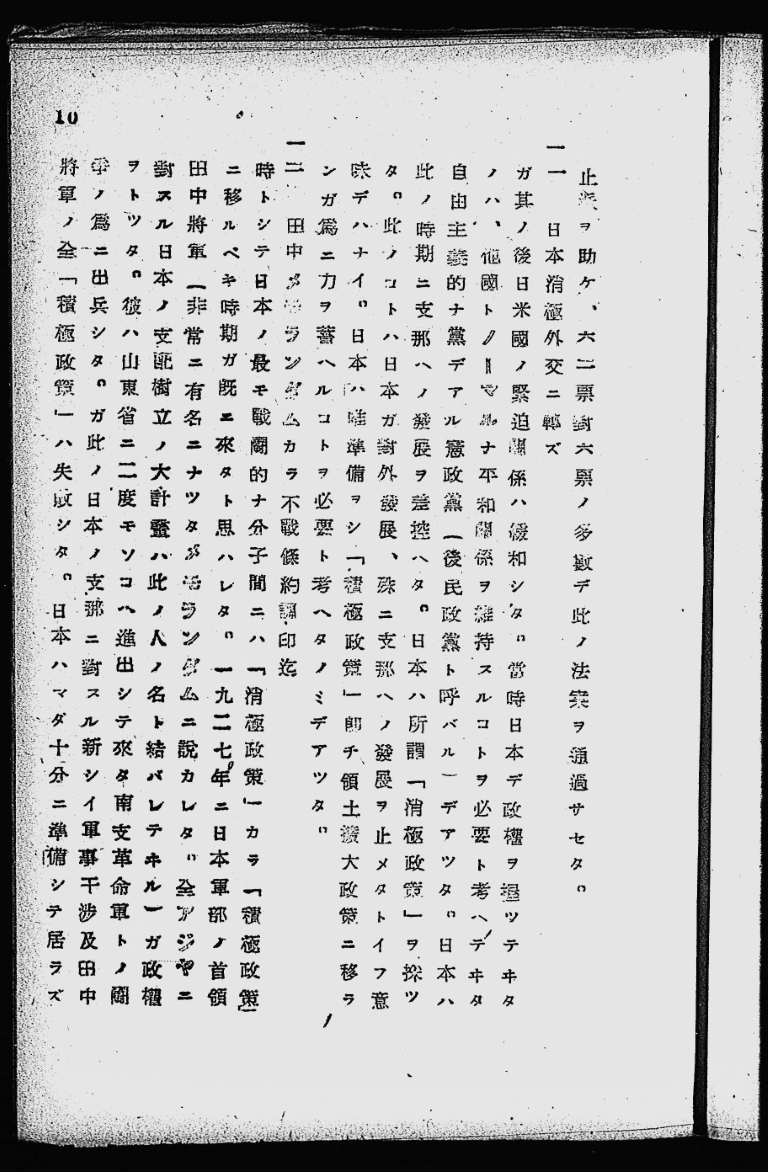 止派ヲ助ケ、六二票對六票ノ多數デ此ノ法案ヲ通過サセタ。
一一 日本消極外交ニ轉ズ
ガ其ノ後日米國ノ緊迫關係ハ緩和シタ。當時日本デ政權ヲ握ツテヰタ
ノハ、他國トノーマルナ平和關係ヲ維持スルコトヲ必要ト考ヘテヰタ
自由主義的ナ黨デアル憲政黨(後民政黨ト呼バル)デアツタ。日本ハ
此ノ時期ニ支那ヘノ發展ヲ差控ヘタ。日本ハ所謂「消極政策」ヲ採ツ
タ。此ノコトハ日本ガ對外發展、殊ニ支那ヘノ發展ヲ止メタトイフ意
味デハナイ。日本ハ唯準備ヲシ「積極政策」卽チ領土擴大政策ニ移ラ
ンガ爲ニ力ヲ蓄ヘルコトヲ必要ト考ヘタノミデアツタ。
一二 田中メモランダムカラ不戰條約調印迄
時トシテ日本ノ最モ戰鬪的ナ分子間ニハ「消極政策」カラ「積極政策」
ニ移ルベキ時期ガ旣ニ來タト思ハレタ。一九二七年ニ日本軍部ノ首領
田中將軍(非常ニ有名ニナツタメモランダムニ說カレタ。全アジヤニ
對スル日本ノ支配樹立ノ大計畫ハ此ノ人ノ名ト結バレテヰル)ガ政權
ヲトツタ。彼ハ山東省ニ二度モソコヘ進出シテ來タ南支革命軍トノ鬪
爭ノ爲ニ出兵シタ。ガ此ノ日本ノ支那ニ對スル新シイ軍事干涉及田中
將軍ノ全「積極政策」ハ失敗シタ。日本ハマダ十分ニ準備シテ居ラズ
10